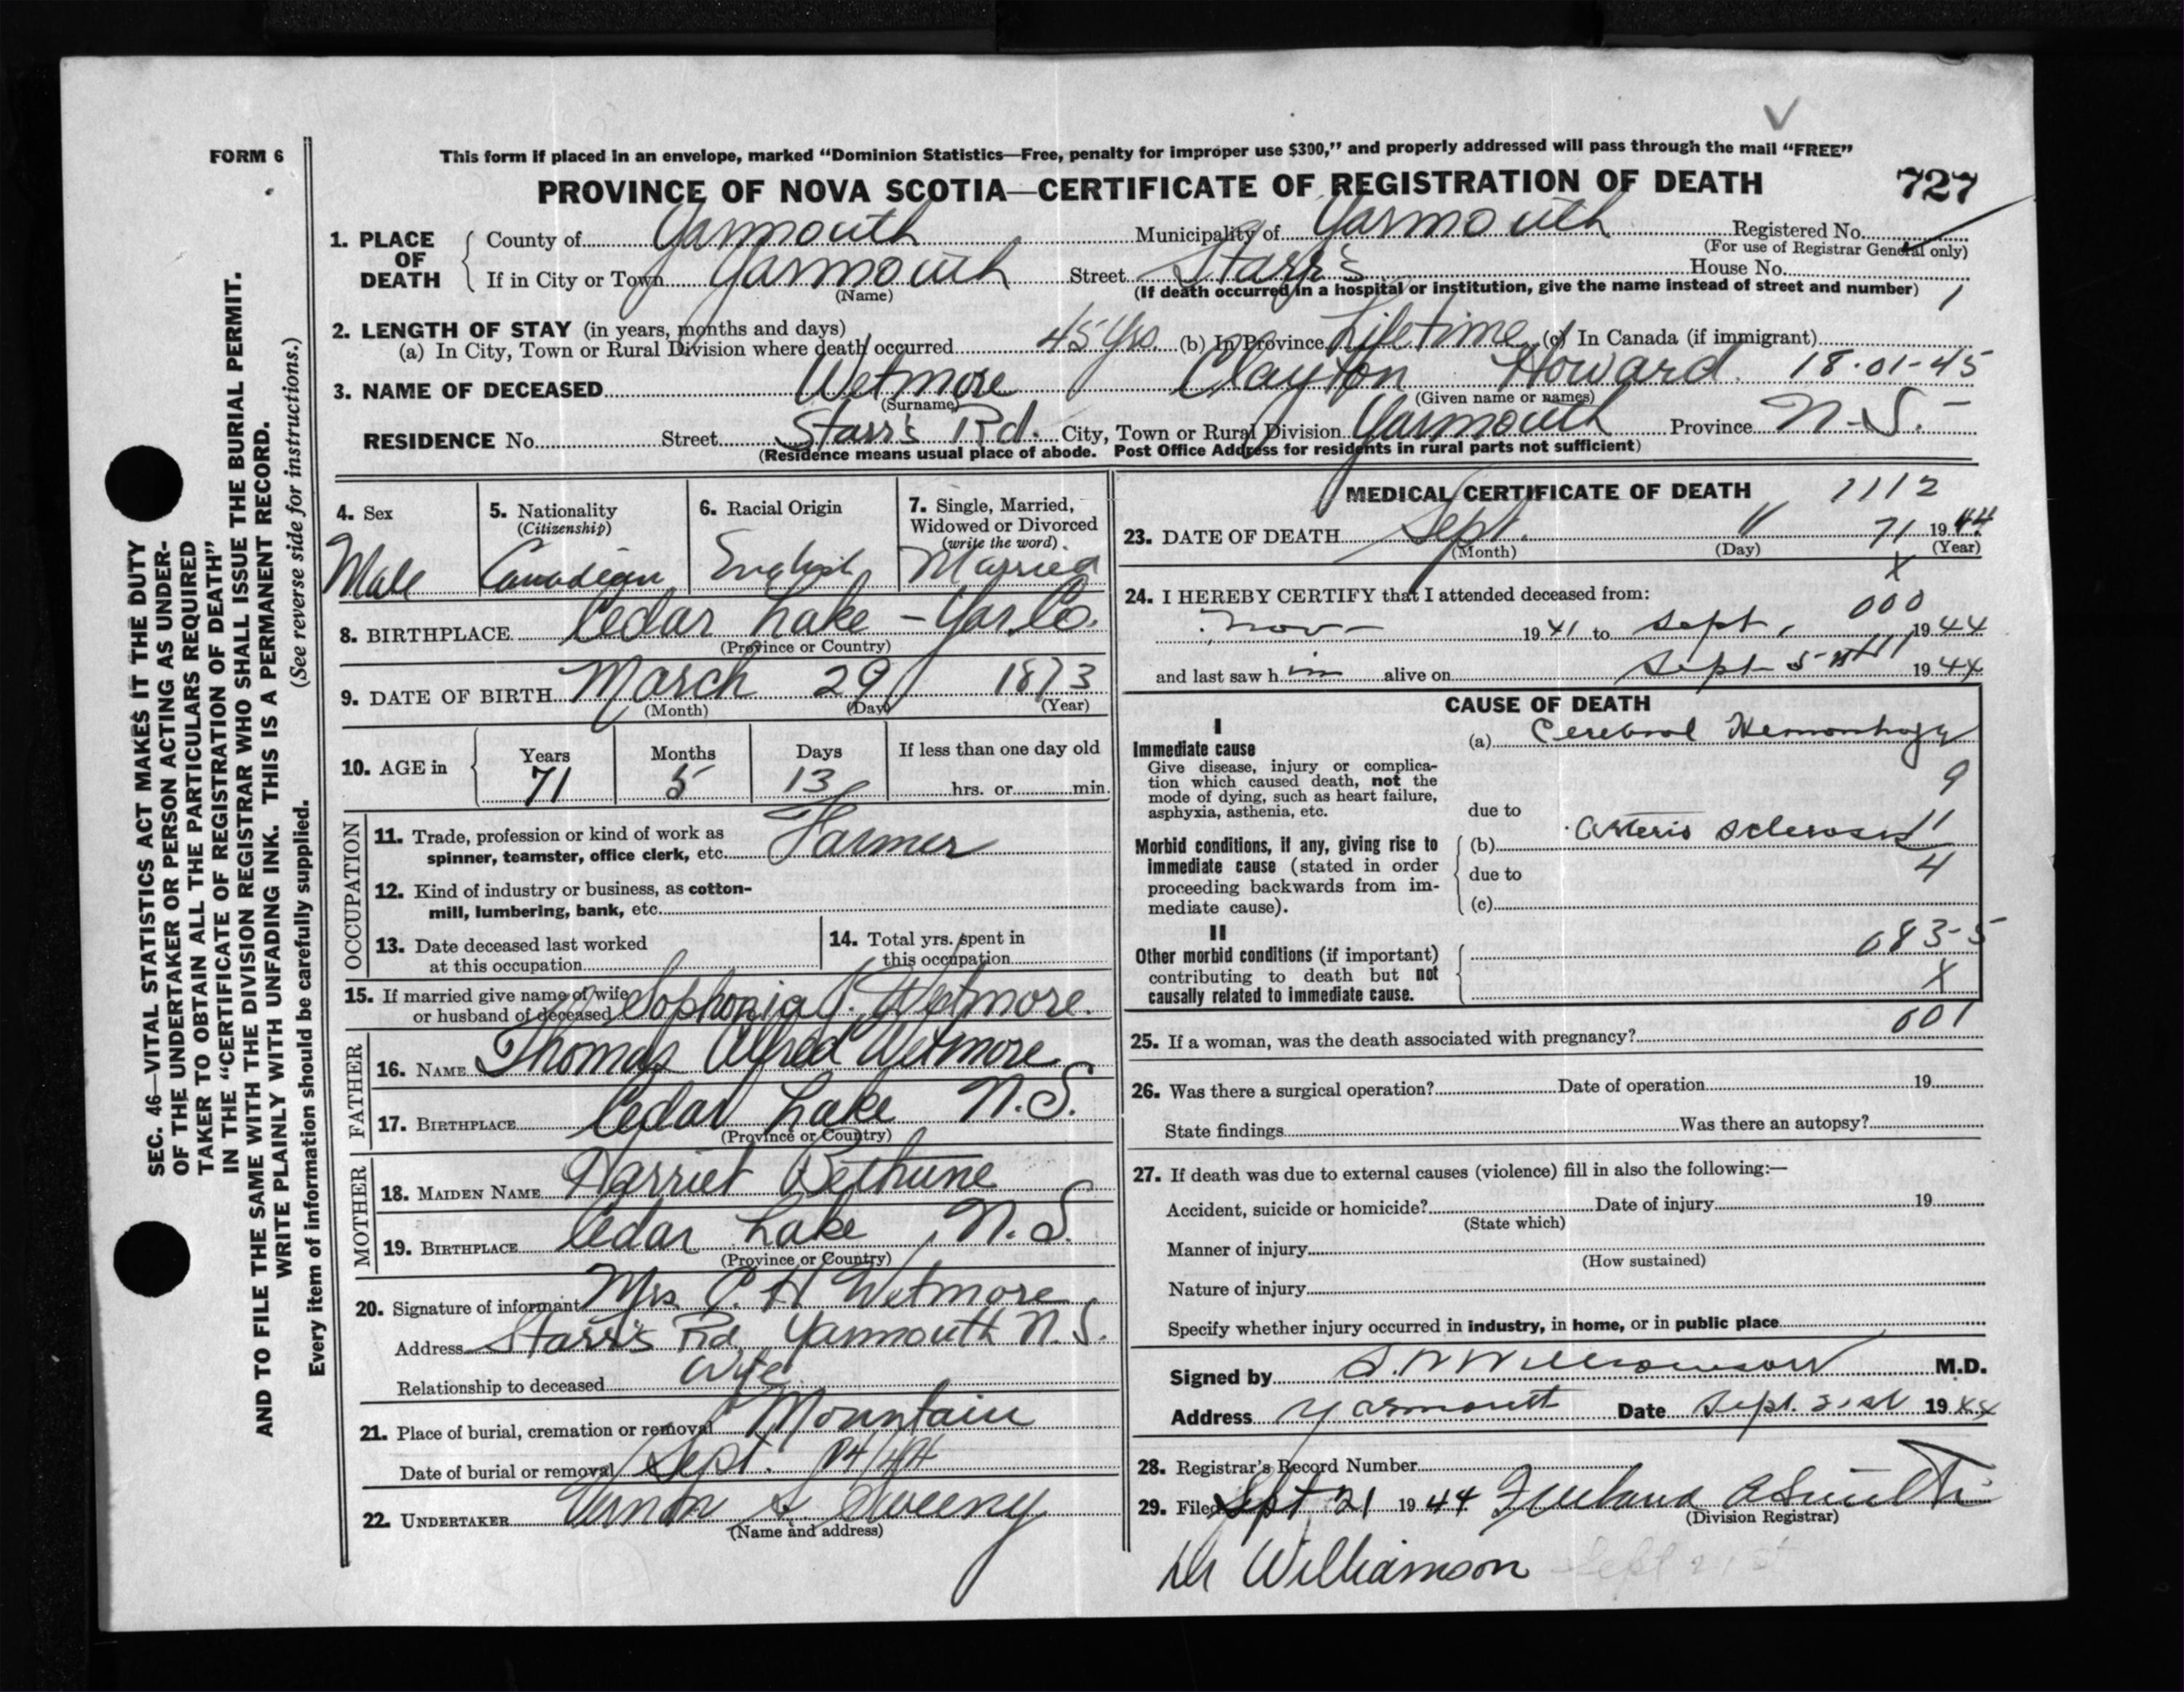 FORM 6
This form if placed in an envelope, marked “Dominion Statistics—Free, penalty for improper use $300,” and properly addressed will pass through the mail “FREE”
PROVINCE OF NOVA SCOTIA—CERTIFICATE OF REGISTRATION OF DEATH 727
1. PLACE OF DEATH County of Yarmouth Municipality of Yarmouth Registered No.
(For use of Registrar General only)
If in City or Town Yarmouth Street Starr's House No.
(Name) (If death occurred in a hospital or institution, give the name instead of street and number) 1
2. LENGTH OF STAY (in years, months and days)
(a) In City, Town or Rural Division where death occurred 45 yrs. (b) In Province Lifetime (c) In Canada (if immigrant)
3. NAME OF DECEASED Wetmore Clayton Howard 18-01-45
(Surname) (Given name or names)
RESIDENCE No. Street Starr's Rd. City, Town or Rural Division Yarmouth Province N.S.
(Residence means usual place of abode. Post Office Address for residents in rural parts not sufficient)
4. Sex 5. Nationality 6. Racial Origin 7. Single, Married,
(Citizenship) Widowed or Divorced
(write the word)
Male Canadian English Married
8. BIRTHPLACE Cedar Lake - Yar. Co.
(Province or Country)
9. DATE OF BIRTH March 29 1873
(Month) (Day) (Year)
10. AGE in Years Months Days If less than one day old
71 5 13 hrs. or min.
OCCUPATION
11. Trade, profession or kind of work as
spinner, teamster, office clerk, etc. Farmer
12. Kind of industry or business, as cotton-
mill, lumbering, bank, etc.
13. Date deceased last worked 14. Total yrs. spent in
at this occupation this occupation
15. If married give name of wife
or husband of deceased Sophonia J. Wetmore.
FATHER
16. NAME Thomas Alfred Wetmore
17. BIRTHPLACE Cedar Lake N.S.
(Province or Country)
MOTHER
18. MAIDEN NAME Harriet Bethune
19. BIRTHPLACE Cedar Lake, N.S.
(Province or Country)
20. Signature of informant Mrs C. H Wetmore
Address Starr's Rd. Yarmouth N.S.
Relationship to deceased Wife
21. Place of burial, cremation or removal Mountain
Date of burial or removal Sept. 14/44
22. UNDERTAKER Vernon S. Sweeny
(Name and address)
MEDICAL CERTIFICATE OF DEATH 1112
23. DATE OF DEATH Sept. 11 71 1944
(Month) (Day) (Year)
X
24. I HEREBY CERTIFY that I attended deceased from:
000
Nov 1941 to Sept. 1944
and last saw him alive on Sept 5 1944
CAUSE OF DEATH
I
Immediate cause (a) Cerebral Hemorrhage
Give disease, injury or complica-
tion which caused death, not the 9
mode of dying, such as heart failure,
asphyxia, asthenia, etc. due to
Morbid conditions, if any, giving rise to (b) Arterio sclerosis 11
immediate cause (stated in order 4
proceeding backwards from im- due to
mediate cause). (c)
II
Other morbid conditions (if important) 083-5
contributing to death but not X
causally related to immediate cause.
001
25. If a woman, was the death associated with pregnancy?
26. Was there a surgical operation? Date of operation 19
State findings Was there an autopsy?
27. If death was due to external causes (violence) fill in also the following:—
Accident, suicide or homicide? Date of injury 19
(State which)
Manner of injury
(How sustained)
Nature of injury
Specify whether injury occurred in industry, in home, or in public place
Signed by Williamson M.D.
Address Yarmouth Date Sept. 21st 1944
28. Registrar's Record Number
29. Filed Sept 21 1944 Smith
(Division Registrar)
Dr Williamson Sept 21st
SEC. 46—VITAL STATISTICS ACT MAKES IT THE DUTY
OF THE UNDERTAKER OR PERSON ACTING AS UNDER-
TAKER TO OBTAIN ALL THE PARTICULARS REQUIRED
IN THE “CERTIFICATE OF REGISTRATION OF DEATH”
AND TO FILE THE SAME WITH THE DIVISION REGISTRAR WHO SHALL ISSUE THE BURIAL PERMIT.
WRITE PLAINLY WITH UNFADING INK. THIS IS A PERMANENT RECORD.
Every item of information should be carefully supplied. (See reverse side for instructions.)